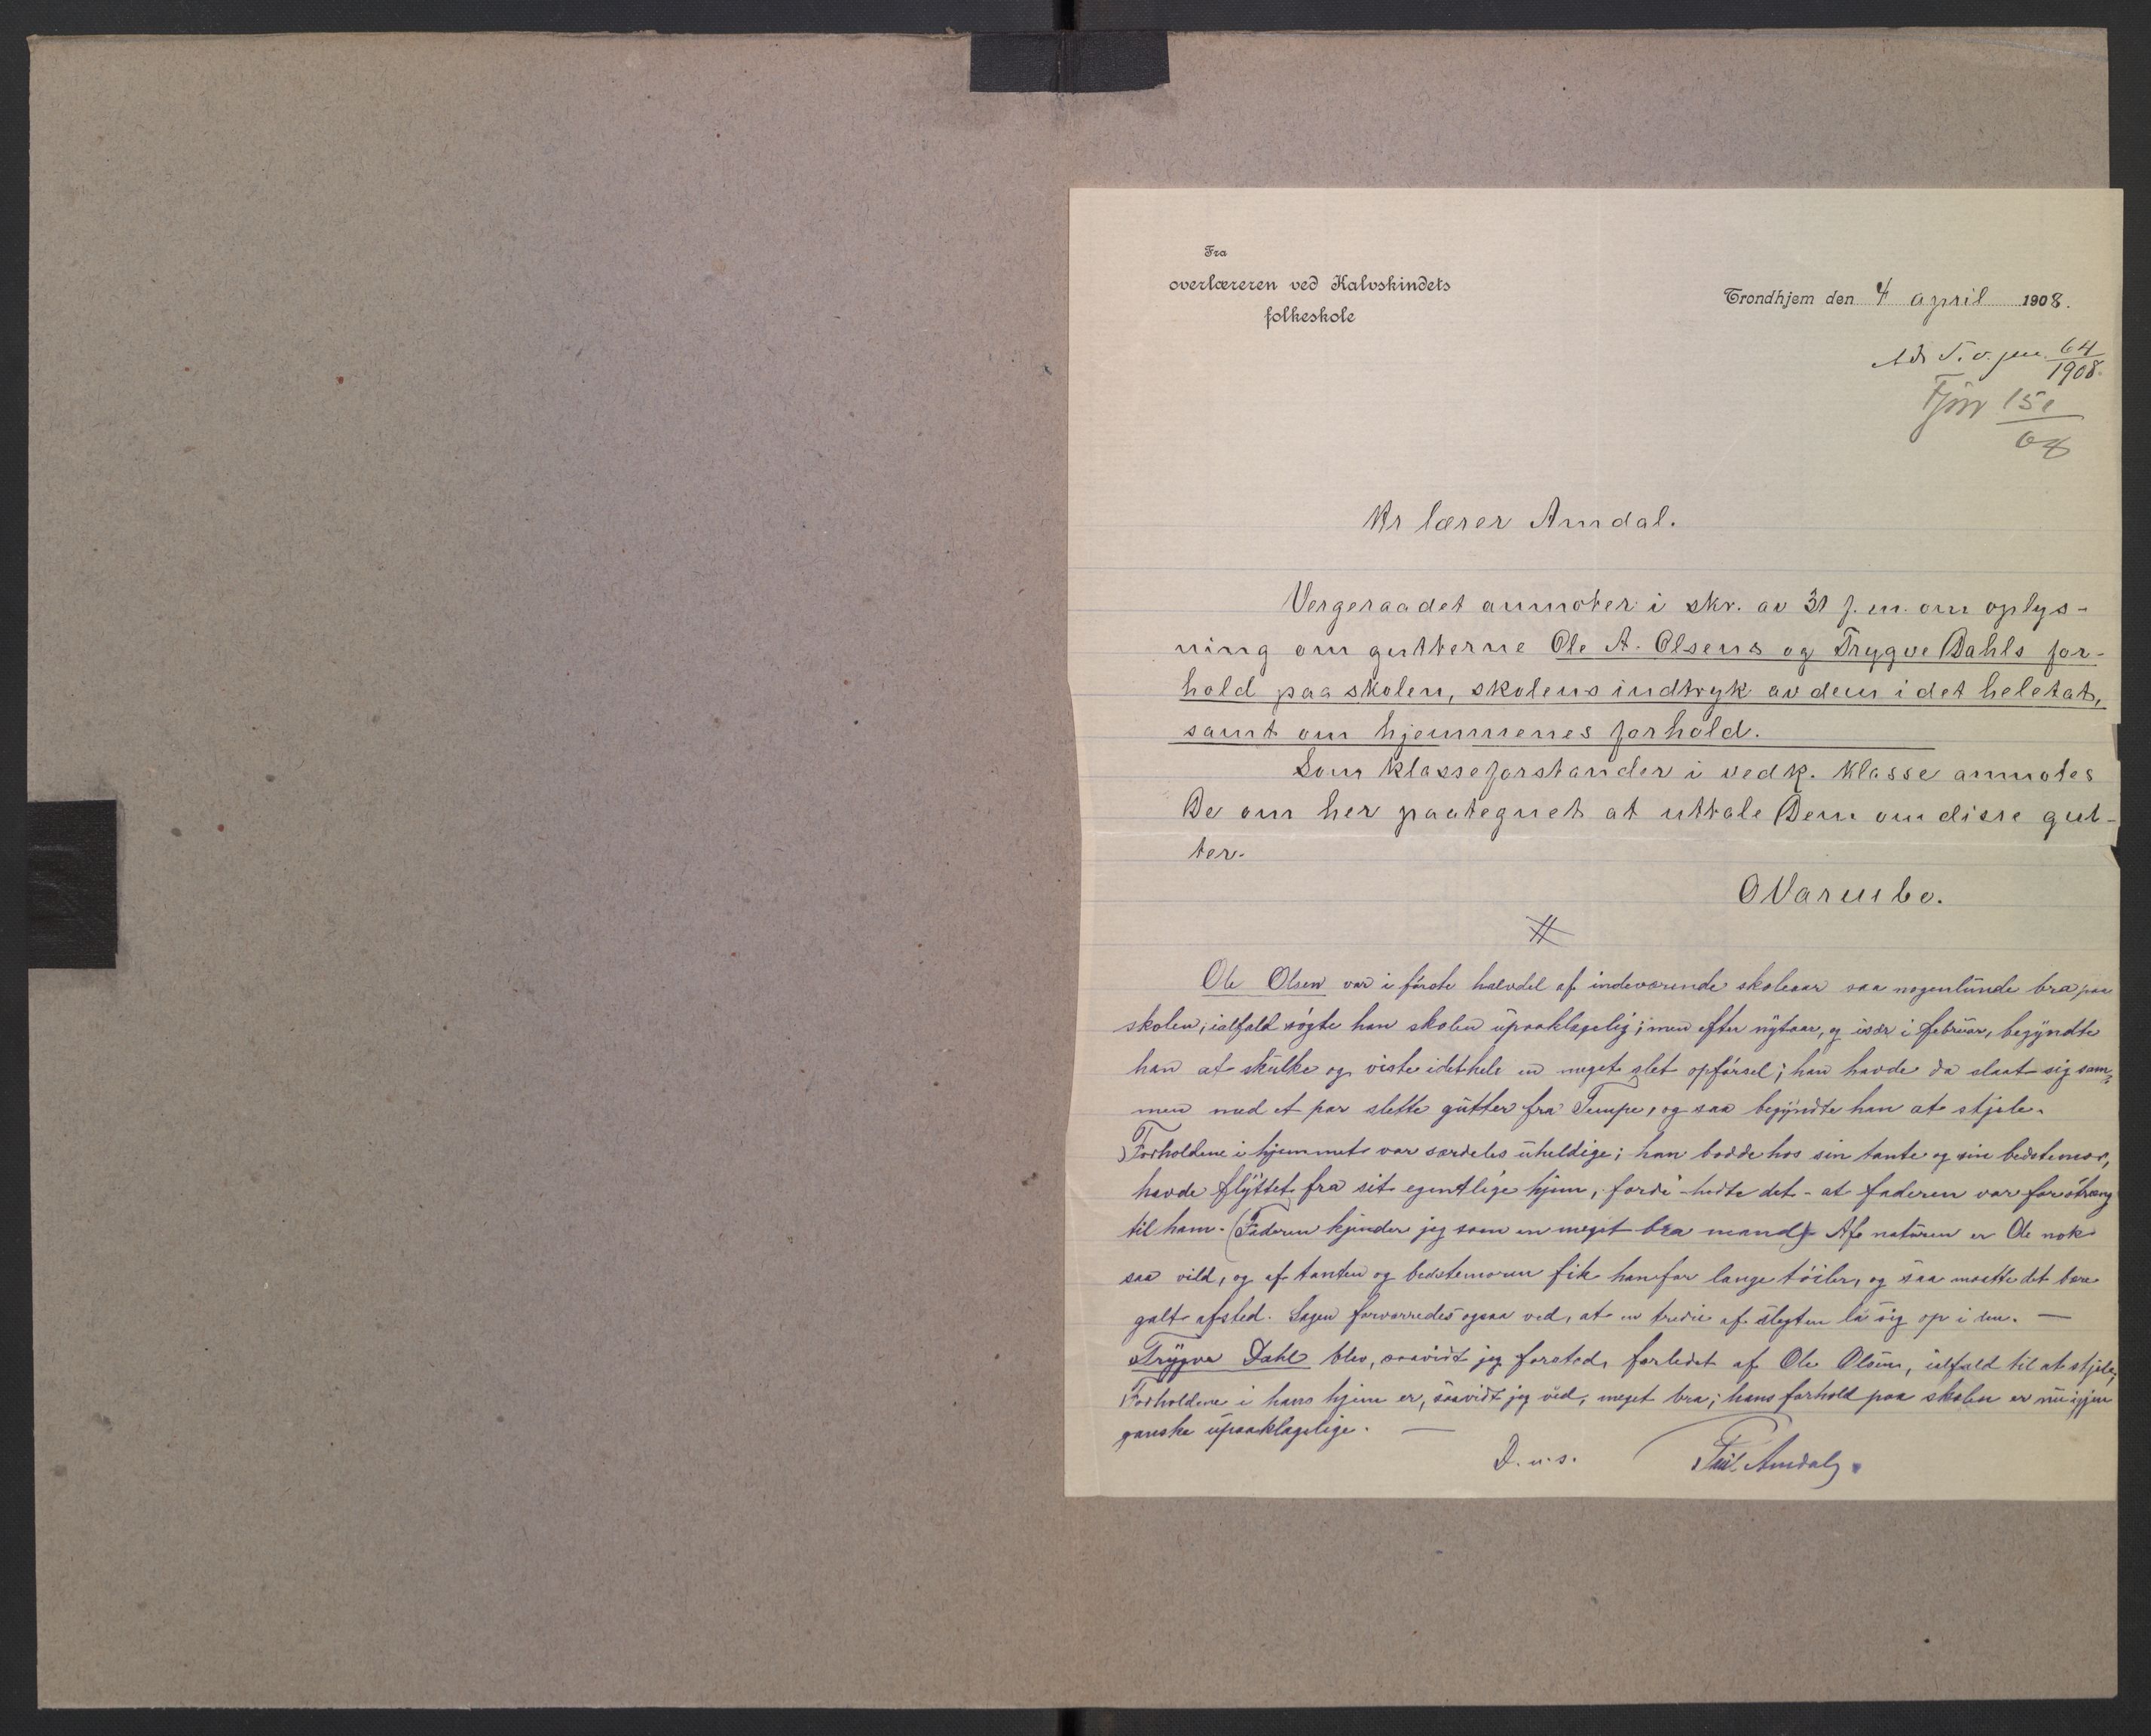 Fra
overlæreren ved Kalvskindets
folkeskole
Trondhjem den 4 april 1908.
64
1908.
151
08
Hr lærer Amdal.
Vergeraadet anmoter i skr. av 31 f. m. om oplys-
ning om gutterne Ole A. Olsens og Trygve Dahls for-
hold paa skolen, skolens indtryk av dem i det heletat,
samt om hjemmenes forhold.
Som klasseforstander i vedk. klasse anmotes
De om her paategnet at uttale Dem om disse gut-
ter.
O Varmbo.
Ole Olsen var i første halvdel af indeværende skoleaar saa nogenlunde bra paa
skolen; ialfald søgte han skolen upaaklagelig; men efter nytaar, og især i februar, begyndte
han at skulke og viste idethele en meget slet opførsel; han havde da slaat sig sam-
men med et par slette gutter fra Tempe, og saa begyndte han at stjele.
Forholdene i hjemmet var særdeles uheldige; han bodde hos sin tante og sin bedstemor,
havde flyttet fra sit egentlige hjem, fordi - hedte det - at faderen var for stræng
til ham. (Faderen kjender jeg som en meget bra mand) Af naturen er Ole nok
saa vild, og af tanten og bedstemoren fik han for lange tøiler, og saa maatte det bære
galt afsted. Sagen forværredes ogsaa ved, at en tredie af slegten la sig op i den. —
Trygve Dahl blev, saavidt jeg forstod, forledet af Ole Olsen, ialfald til at stjele;
Forholdene i hans hjem er, saavidt jeg ved, meget bra; hans forhold paa skolen er nu igjen
ganske upaaklagelige. —
D. u. s. Amdal.